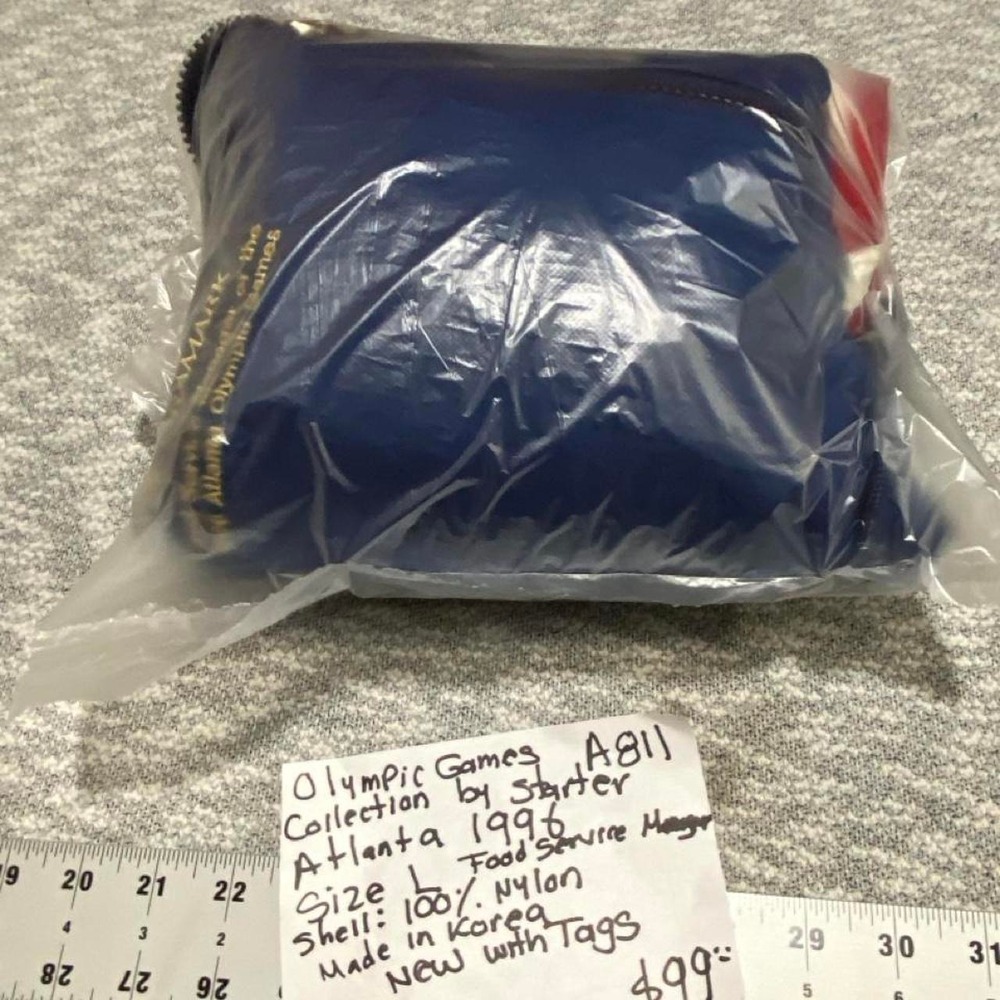 of the
Atlanta Olympic Games
Olympic Games A811
Collection by Starter
Atlanta 1996
Food Service
Size L
Shell: 100% Nylon
Made in Korea
New with Tags
$99
20 21 22
4 3 2
28 27 26
29 30 31
5 6